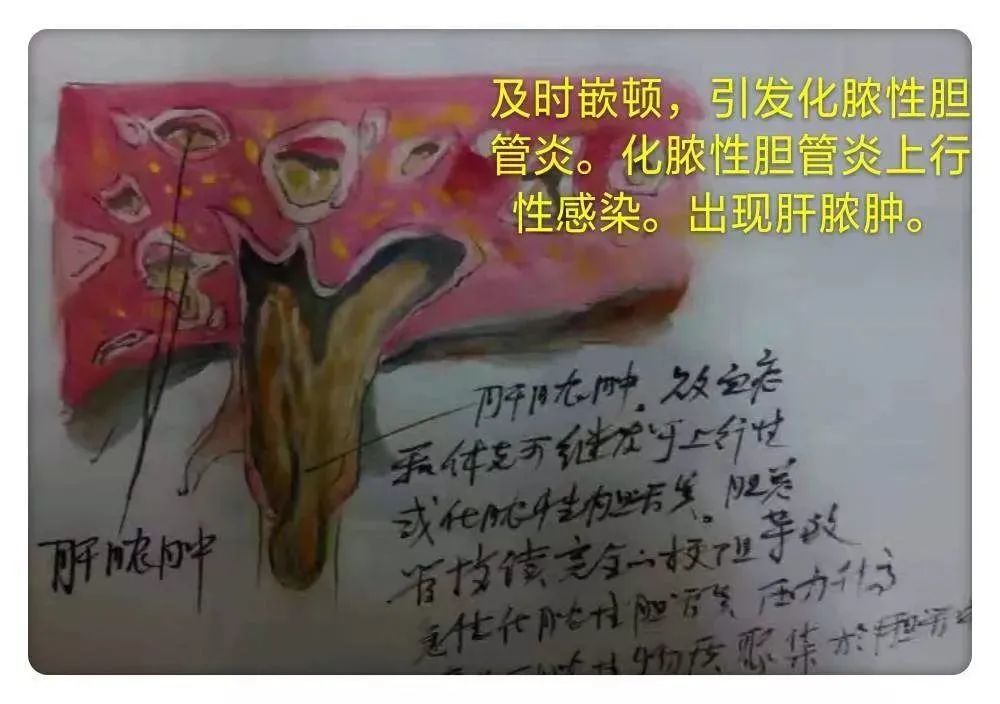 及时嵌顿，引发化脓性胆
管炎。化脓性胆管炎上行
性感染。出现肝脓肿。
肝脓肿。败血症
和休克可继发于上行性
或化脓性胆管炎。胆总
管持续完全的梗阻导致
急性化脓性胆管炎 压力升高
物质聚集於胆管
肝脓肿